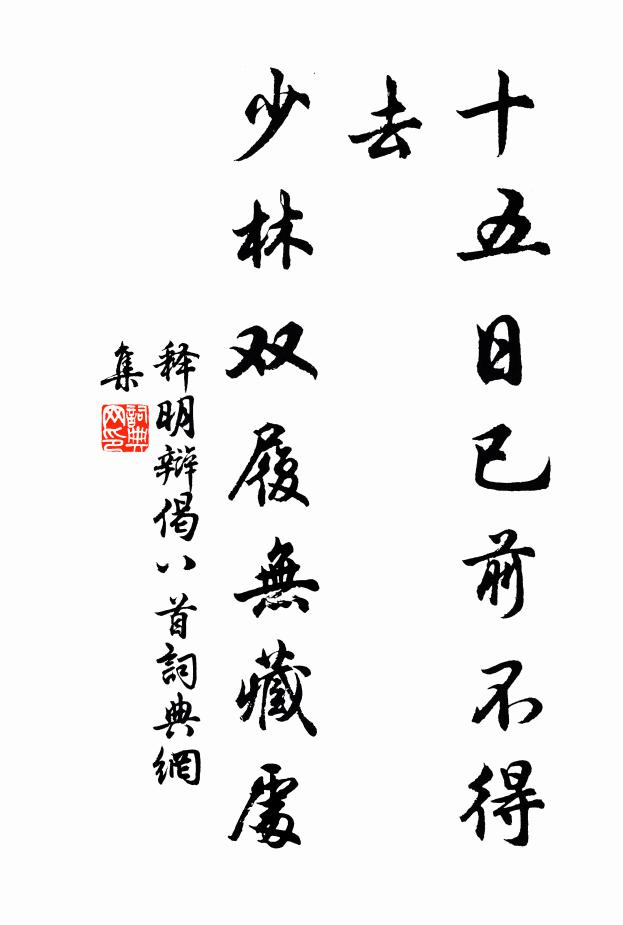 十五日已前不得
去
少林双履無藏處
释明辩偈八首詞典網
集
詞典
网印